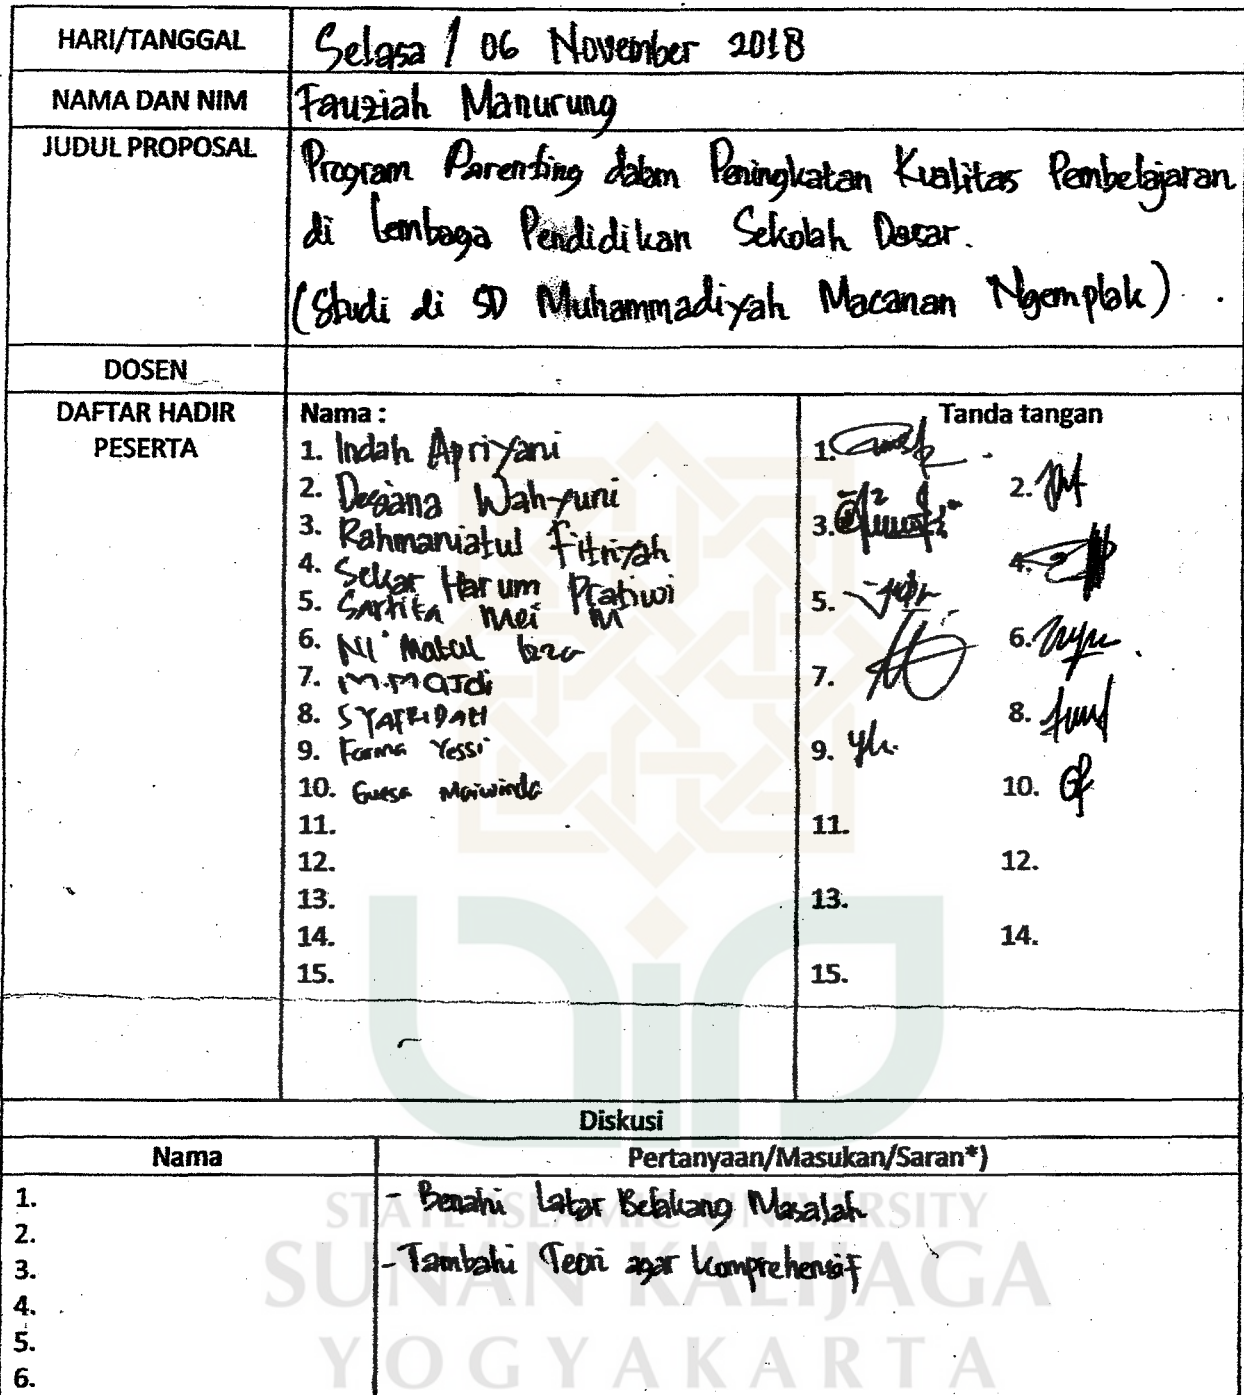 HARI/TANGGAL Selasa / 06 November 2018
NAMA DAN NIM Fauziah Manurung
JUDUL PROPOSAL Program Parenting dalam Peningkatan Kualitas Pembelajaran
di Lembaga Pendidikan Sekolah Dasar.
(Studi di SD Muhammadiyah Macanan Ngemplak)
DOSEN
DAFTAR HADIR
PESERTA
Nama :
1. Indah Apriyani
2. Desiana Wahyuni
3. Rahmaniatul Fitriyah
4. Sekar Harum Pratiwi
5. Sartika Mei M
6. Ni'matul Izza
7. M. MAJdi
8. SYAFRIDAH
9. Farma Yessi
10. Guesa Maiwinda
11.
12.
13.
14.
15.
Tanda tangan
1.
2.
3.
4.
5.
6.
7.
8.
9.
10.
11.
12.
13.
14.
15.
Diskusi
Nama Pertanyaan/Masukan/Saran*)
1. - Benahi Latar Belakang Masalah
2.
3. - Tambahi Teori agar komprehensif
4.
5.
6.
STATE ISLAMIC UNIVERSITY
SUNAN KALIJAGA
YOGYAKARTA